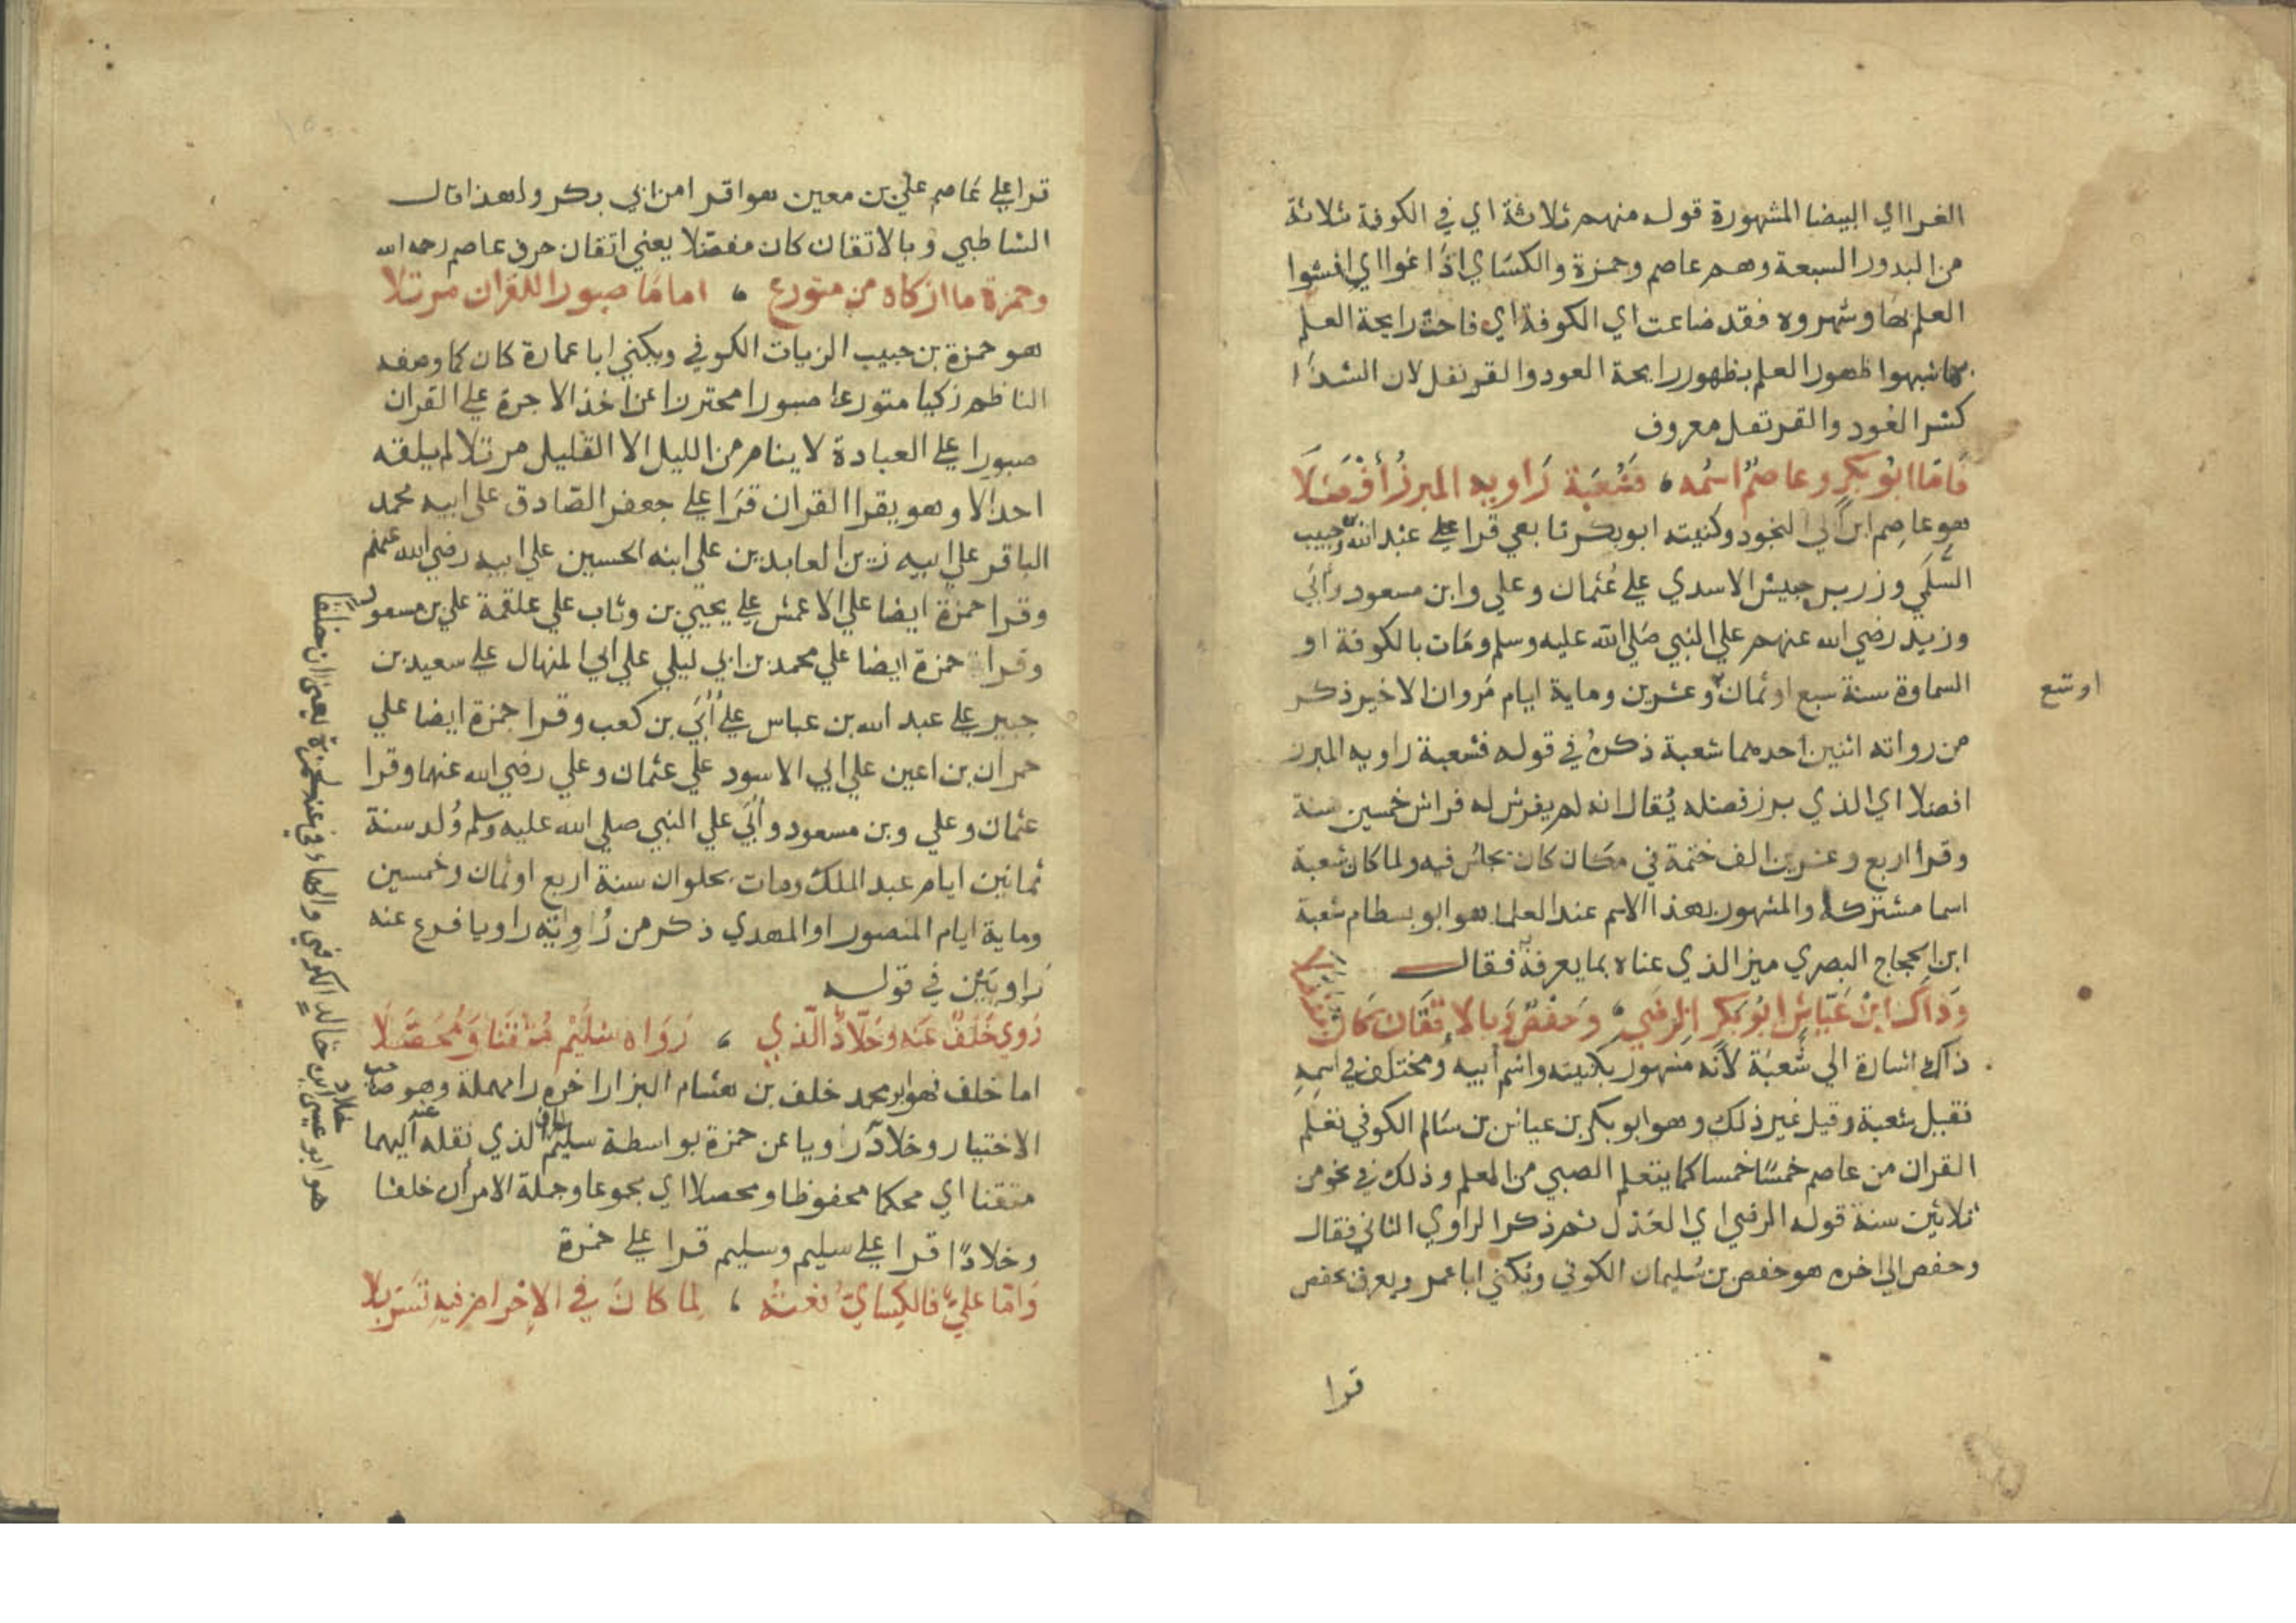 الغرا اي البيضا المشهورة قوله منهم ثلاثة اي في الكوفة ثلاثة
من البدور السبعة وهم عاصم وحمزة والكساي اذاعوا اي افشوا
العلم بها وشهروه فقد ضاعت اي الكوفة اي فاحت رايحة العلم
بها شبهوا ظهور العلم بظهور رايحة العود والقرنفل لان الشذا
كسر العود والقرنفل معروف
فَامّا ابُو بكرٍ وعاصمٌ اسمُه ، فَشُعبَة رَاويه المبرزُ أَفْضَلَا
هو عاصم ابن ابي النجود وكنيته ابو بكر تابعي قرا علي عبد الله بن حبيب
السُّلَمي وزر بن حبيش الاسدي علي عُثمان وعلي وابن مسعود وأُبَي
وزيد رضي الله عنهم علي النبي صلى الله عليه وسلم ومَات بالكوفة او
السماوة سنة سبع او ثمان وعشرين وماية ايام مَروان الاخير ذكر
او تسع
من رواته اثنين احدهما شعبة ذكرهُ في قوله فشعبة راويه المبرز
افضلا اي الذي برز فضله يُقال انه لم يفرش له فراش خمسين سنة
وقرأ اربع وعشرين الف ختمة في مكان كان يجلس فيه ولما كان شعبة
اسما مشتركا والمشهور بهذا الاسم عند العلما هو ابو بسطام شعبة
ابن الحجاج البصري ميز الذي عناه بما يعرفه فقال
وَذَاكَ ابنُ عَيّاشٍ ابُو بَكرٍ الرضَي ، وَحَفْصٌ وَبالاتقَان كَانَ مفضلا
ذاك اشارة الي شُعبَة لأنه مشهور بكنيته واسْم أبيه ومختلف في اسمِه
فقيل شعبة وقيل غير ذلك وهو ابو بكر بن عياش بن سَالم الكوفي تعلم
القران من عاصم خمسًا خمسا كما يتعلم الصبي من المعلم وذلك في نحو من
ثلاثين سنة قوله الرضي اي العَدْل ثم ذكر الراوي الثاني فقال
وحفص الي اخره هو حفص بن سُليمان الكوفي ويُكني ابا عمر ويعرف بحفص
قرا
قرا علي عَاصم علي بن معين هو اقرا من ابي بكر ولهذا قال
الشاطبي وبالاتقان كان مفضّلا يعني اتقان حرف عاصم رحمه الله
وحمزة ما ازكاه من متورع ، امامًا صبورا للقران مرتلا
هو حمزة بن حبيب الزيات الكوفي ويكني ابا عمارة كان كما وصفه
الناظم زكيا متورعا صبورا محترزا عن اخذ الاجرة علي القران
صبورا علي العبادة لا ينام من الليل الا القليل مرتلا لم يلقه
احد الا وهو يقرا القران قرَا علي جعفر الصّادق علي ابيه محمد
الباقر علي ابيه زين العابدين علي ابنه الحسين علي ابيه رضي الله عنهم
وقرا حمزة ايضا علي الاعمش علي يحيي بن وثاب علي علقمة علي بن مسعود
وقرا حمزة ايضا علي محمد بن ابي ليلي علي ابي المنهال علي سعيد بن
جبير علي عبد الله بن عباس علي أُبَي بن كعب وقرا حمزة ايضا علي
حمران بن اعين علي ابي الاسود علي عثمان وعلي رضي الله عنهما وقرا
عثمان وعلي وبن مسعود وأُبَي علي النبي صلي الله عليه وسلم وُلد سنة
ثمانين ايام عبد الملك ومات بحلوان سنة اربع او ثمان وخمسين
وماية ايام المنصور او المهدي ذكر من رُواته راويا فرع عنه
رَاويَيْن في قوله
رَوي خَلَفٌ عَنه وخَلّادٌ الّذي ، رَوَاه سُلَيْم مُتْقَنا وَمُحَصَّلَا
اما خلف فهو ابو محمد خلف بن هشام البزار اخره را مهملة وهو صاحب
الاختيار وخلاد رَاويا عن حمزة بواسطة سليم الذي نقله عنه اليهما
متقنا اي محكما محفوظا ومحصلا اي مجموعا وجملة الامر أن خلفا
وخلادًا قرا علي سليم وسليم قرا علي حمزة
وَامّا عليٌّ فالكِسَايُّ نعتُه ، لِما كَانَ في الإحْرام فيه تَسَرْبلا
يعني ان خلفا
والهاء في عنه لحمزة
خلاد
هو ابو عيسى ابن خالد الكوفي